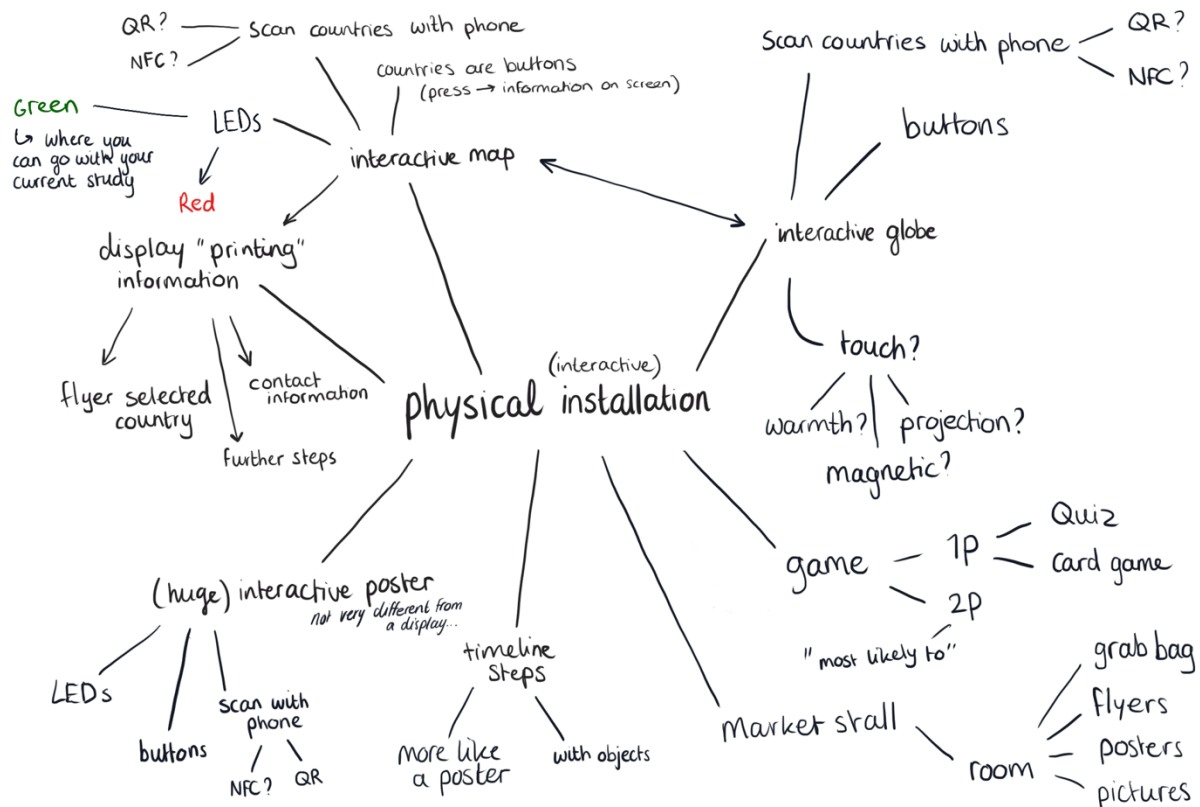 QR?
NFC?
Scan countries with phone
countries are buttons
(press → information on screen)
Green
↳ where you
can go with your
current study
LEDs
Red
interactive map
display "printing"
information
flyer selected
country
contact
information
further steps
Scan countries with phone
QR?
NFC?
buttons
interactive globe
touch?
warmth?
projection?
magnetic?
(interactive)
physical installation
(huge) interactive poster
not very different from
a display...
LEDs
buttons
scan with
phone
NFC?
QR
timeline
steps
more like
a poster
with objects
game
1p
Quiz
card game
2p
"most likely to"
Market stall
room
grab bag
flyers
posters
pictures